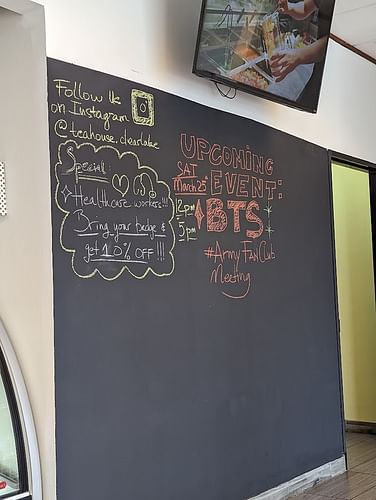 Follow Us
on Instagram
@teahouse.clearlake
Special:
Healthcare workers!!!
Bring your badge &
get 10% OFF!!!
UPCOMING
EVENT:
SAT
March 25th
12pm
-
5pm
BTS
#Army Fan Club
Meeting